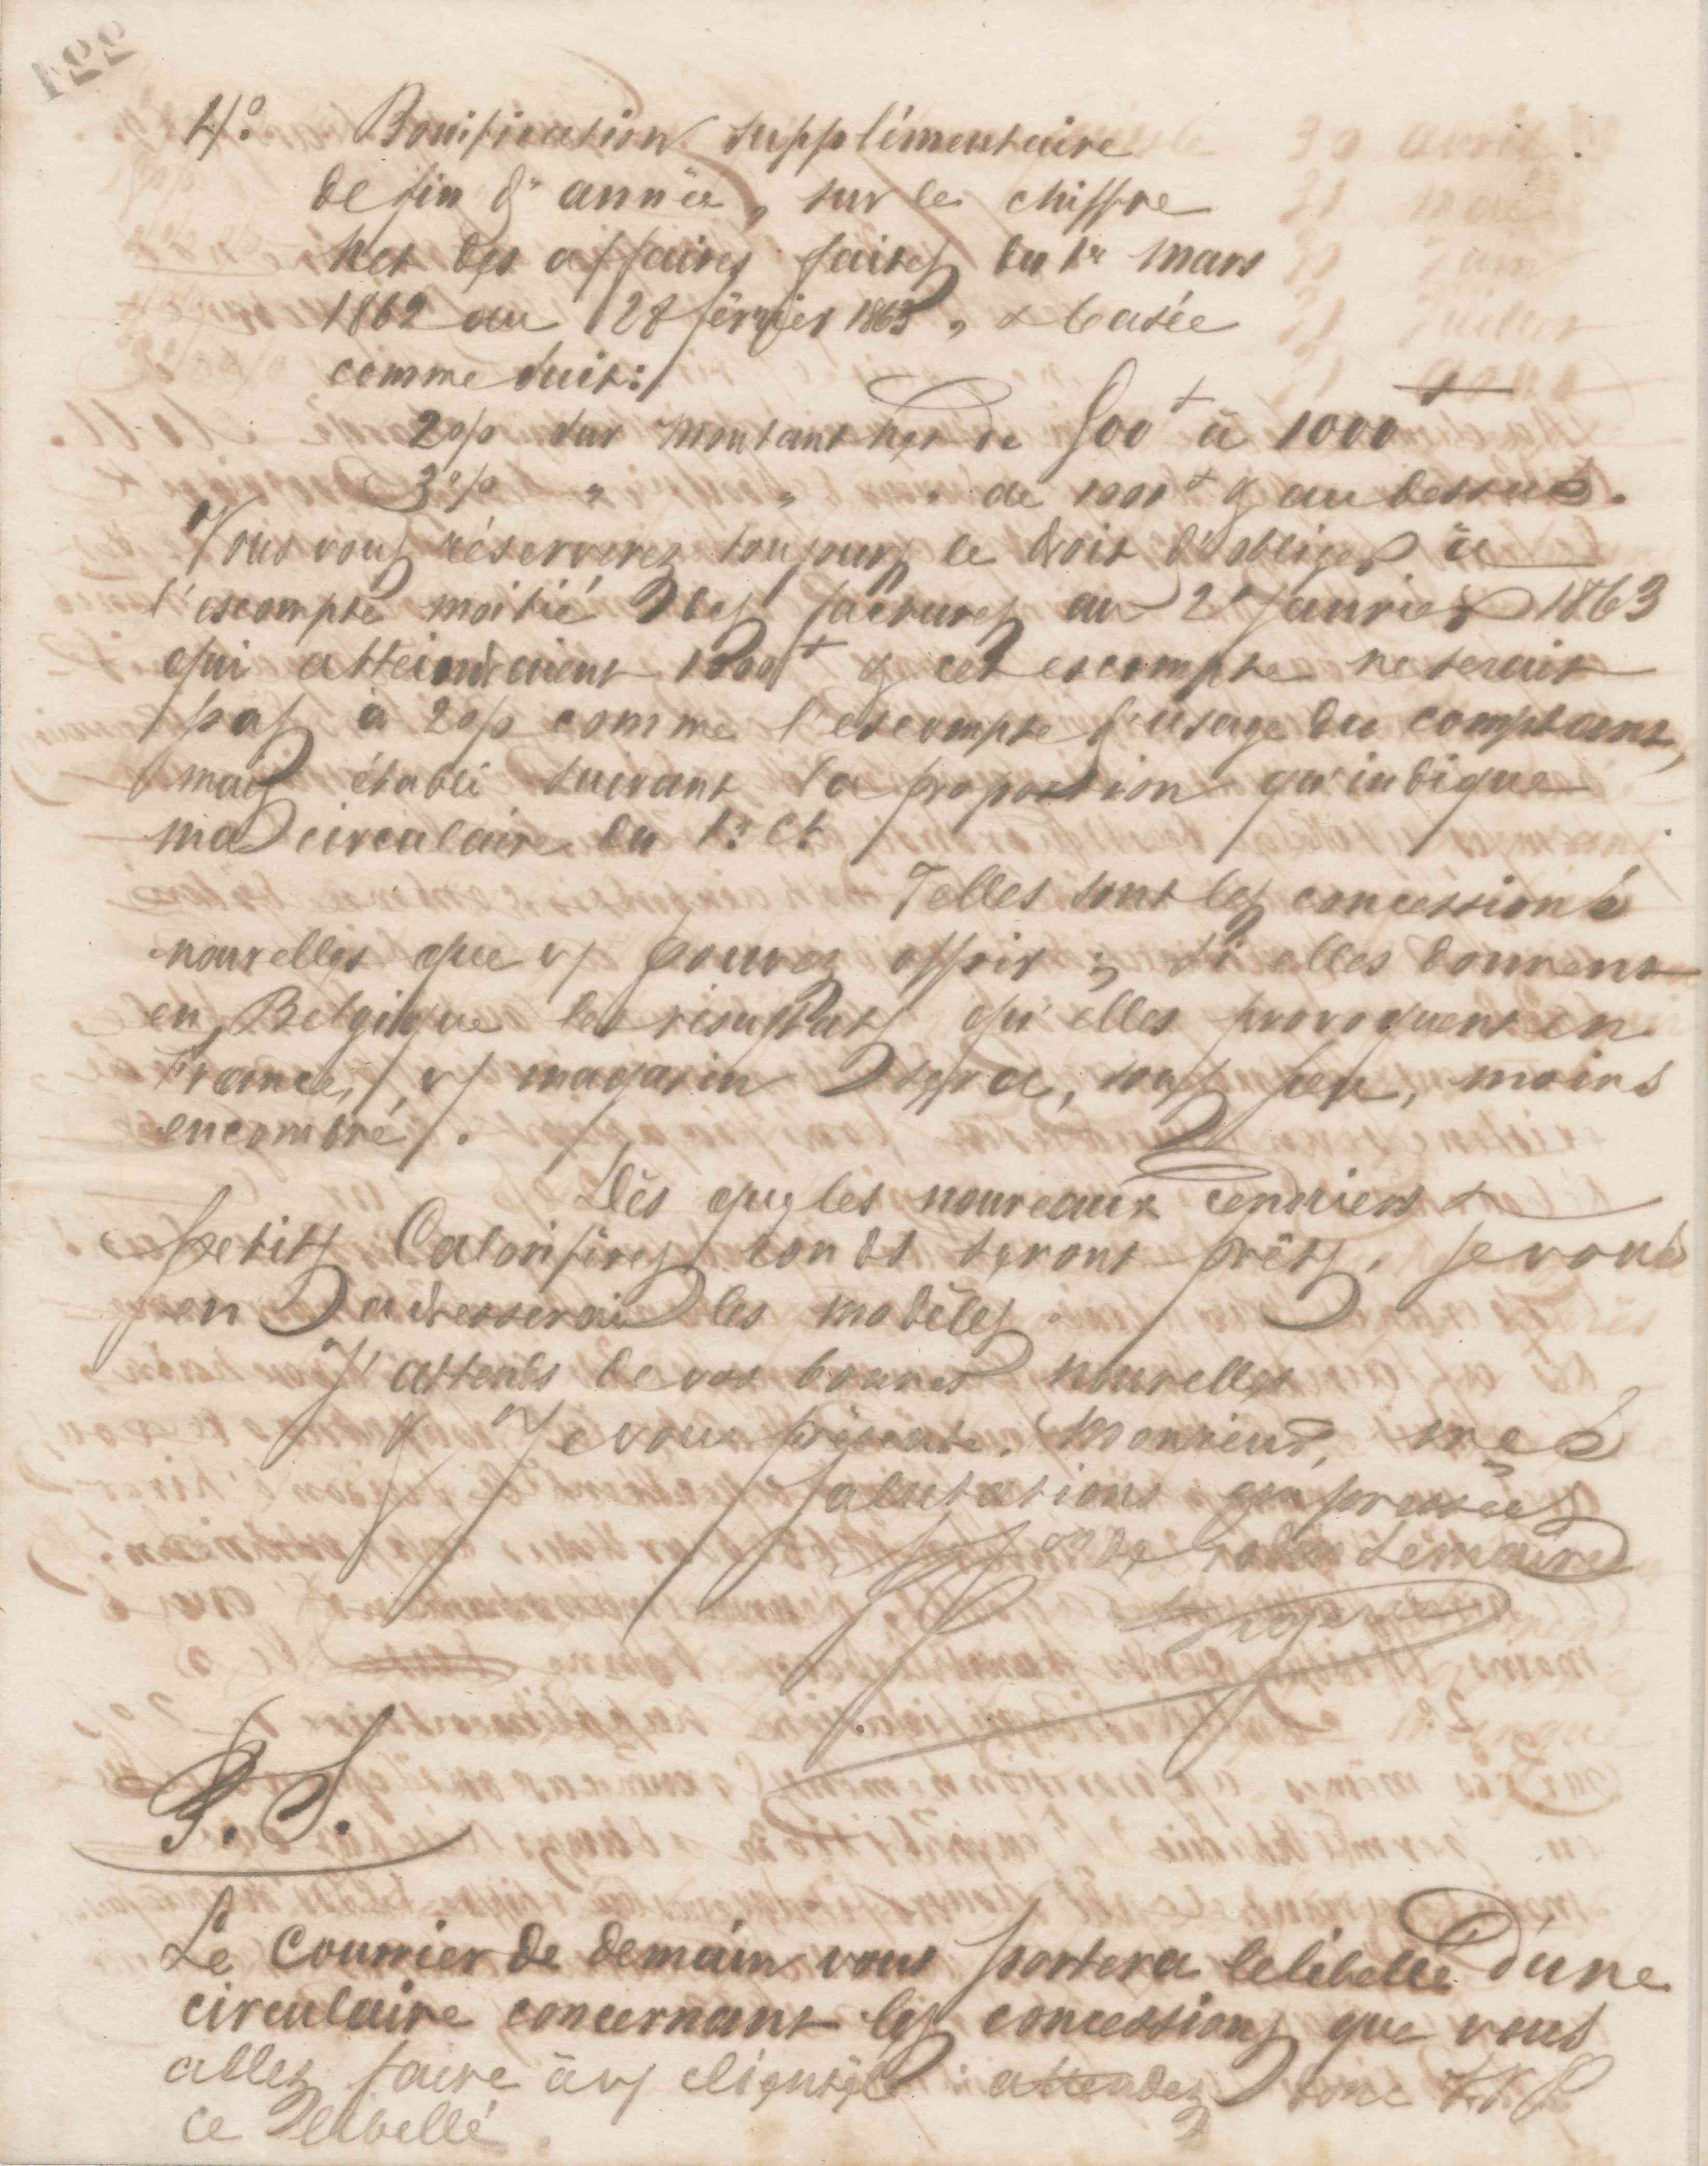 4º. Bonification supplémentaire
de fin d'année, sur le chiffre
net des affaires faites du 1er mars
1862 au 28 février 1863, & basée
comme suit:
2 o/o sur montant net de 500 f à 1000 f
3 o/o " " " de 1001 f & au dessus.
Vous vous réserverez toujours le droit d'obliger à
l'escompte moitié des factures au 2 Janvier 1863
qui atteindraient 1000 f & cet escompte ne serait
pas à 2 o/o comme l'escompte d'usage du comptant,
mais établi suivant la proportion qu'indique
ma circulaire du 1er ct.
Telles sont les concessions
nouvelles que vs pouvez offrir; si elles donnent
en Belgique les résultats qu'elles provoquent en
France, vs magasin sera, sous peu, moins
encombré.
Dès que les nouveaux cendriers &
petits Calorifères ronds seront prêts, je vous
en adresserai les modèles.
J'attends de vos bonnes nouvelles
& Je vous présente, Monsieur, mes
salutations empressées
Pon de Godin Lemaire
P.S.
Le Courrier de demain vous portera le libellé d'une
circulaire concernant les concessions que vous
allez faire à vs clientèle: attendez donc S.V.P.
ce libellé.
221